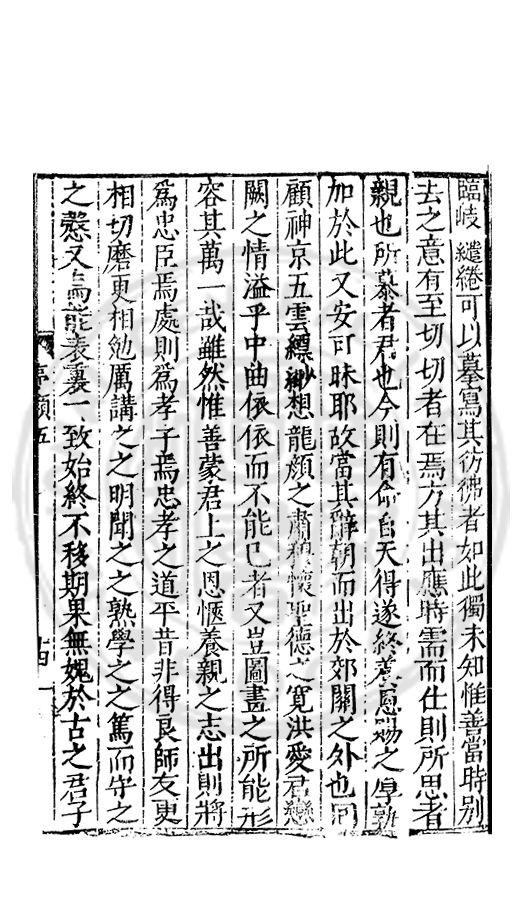 臨岐繾綣可以摹寫其彷彿者如此獨未知惟善當時別
去之意有至切切者在焉方其出應時需而仕則所思者
親也所慕者君也今則有命自天得遂終養恩賜之厚孰
加於此又安可昧耶故當其辭朝而出於郊關之外也回
顧神京五雲縹緲想龍顏之肅穆懷聖德之寛洪愛君戀
闕之情溢乎中曲依依而不能已者又豈圖畫之所能形
容其萬一哉雖然惟善蒙君上之恩愜養親之志出則將
爲忠臣焉處則爲孝子焉忠孝之道平昔非得良師友更
相切磨更相勉厲講之之明聞之之熟學之之篤而守之
之愨又焉能表裏一致始終不移期果無媿於古之君子